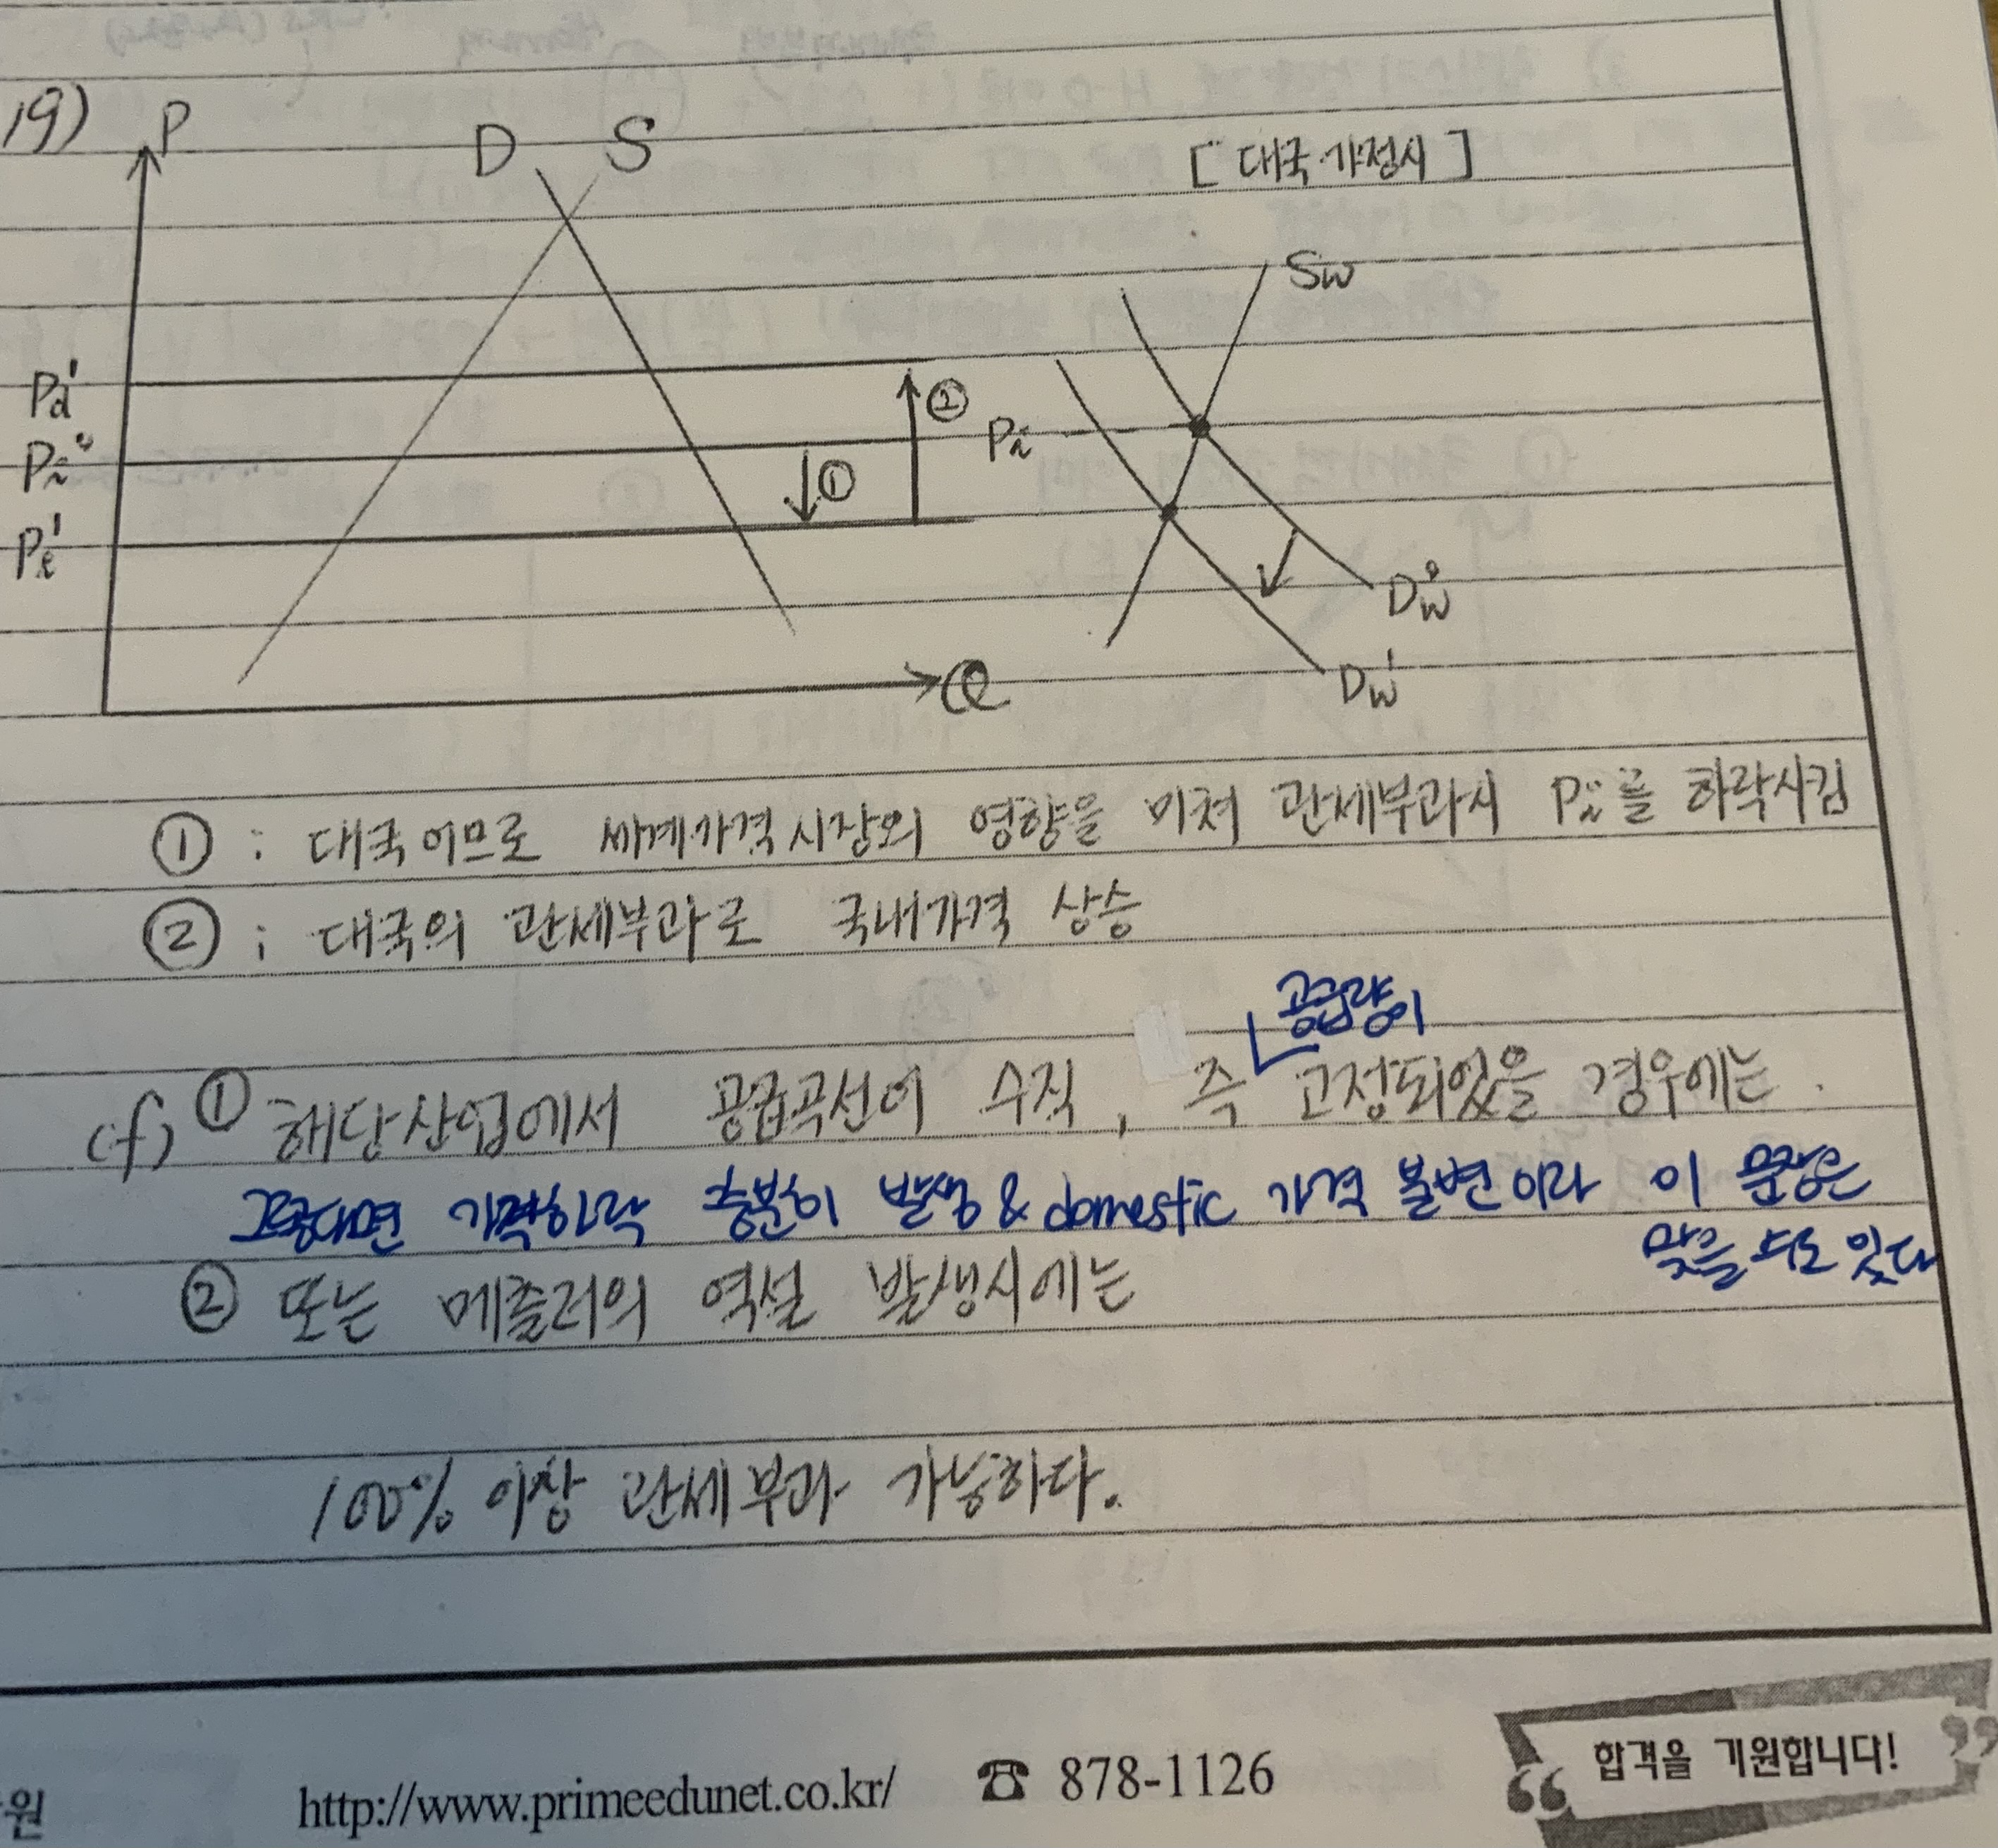 19) P D S [대국 가정시]
Sw
Pd'
② Pi
Pi°
①
Pi'
Dw°
Q
Dw'
① : 대국이므로 세계가격시장의 영향을 미쳐 관세부과시 Pi를 하락시킴
② ; 대국의 관세부과로 국내가격 상승
공급량이
cf) ① 해당산업에서 공급곡선이 수직, 즉 고정되있을 경우에는.
그렇다면 가격하락 충분히 발생 & domestic 가격 불변이라 이 문장은
맞을 수도 있다
② 또는 메츨러의 역설 발생시에는
100% 이상 관세부과 가능하다.
원 http://www.primeedunet.co.kr/ ☎ 878-1126 “합격을 기원합니다!”